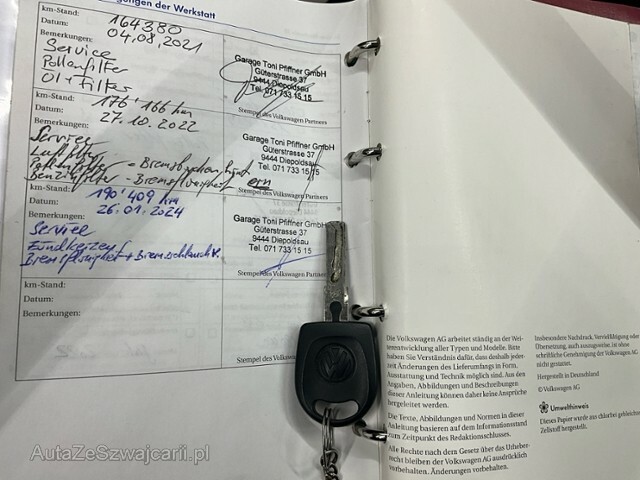 gungen der Werkstatt
km-Stand: 164380
Datum: 04.08.2021
Bemerkungen:
Service
Pollenfilter
Öl + Filter
Garage Toni Pfiffner GmbH
Güterstrasse 37
9444 Diepoldsau
Tel. 071 733 15 15
Stempel des Volkswagen Partners
km-Stand: 176'166 km
Datum: 27.10.2022
Bemerkungen:
Service
Luftfilter
Pollenfilter
Benzinfilter - Bremsflüssigkeit ern
Garage Toni Pfiffner GmbH
Güterstrasse 37
9444 Diepoldsau
Tel. 071 733 15 15
Stempel des Volkswagen Partners
km-Stand: 190'409 km
Datum: 26.01.2024
Bemerkungen:
Service
Zündkerzen
Bremsflüssigkeit + Bremsschlauch
Garage Toni Pfiffner GmbH
Güterstrasse 37
9444 Diepoldsau
Tel. 071 733 15 15
Stempel des Volkswagen Partners
km-Stand:
Datum:
Bemerkungen:
Stempel des Volkswagen
Die Volkswagen AG arbeitet ständig an der Wei-
terentwicklung aller Typen und Modelle. Bitte
haben Sie Verständnis dafür, dass deshalb jeder-
zeit Änderungen des Lieferumfangs in Form,
Ausstattung und Technik möglich sind. Aus den
Angaben, Abbildungen und Beschreibungen
dieser Anleitung können daher keine Ansprüche
hergeleitet werden.
Die Texte, Abbildungen und Normen in dieser
Anleitung basieren auf dem Informationsstand
zum Zeitpunkt des Redaktionsschlusses.
Alle Rechte nach dem Gesetz über das Urheber-
recht bleiben der Volkswagen AG ausdrücklich
vorbehalten. Änderungen vorbehalten.
Insbesondere Nachdruck, Vervielfältigung oder
Übersetzung, auch auszugsweise, ist ohne
schriftliche Genehmigung der Volkswagen AG
nicht gestattet.
Hergestellt in Deutschland
© Volkswagen AG
Umwelthinweis
Dieses Papier wurde aus chlorfrei gebleichtem
Zellstoff hergestellt.
AutaZeSzwajcarii.pl